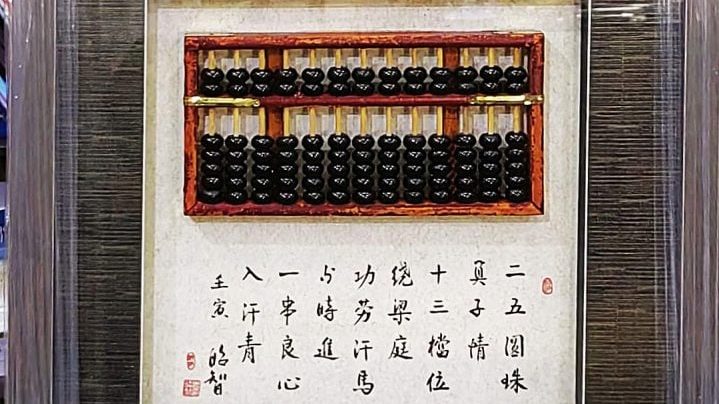 二五圆珠
子情
十三檔位
绕梁庭
功劳汗马
与時進
一串良心
入汗青
壬寅 智